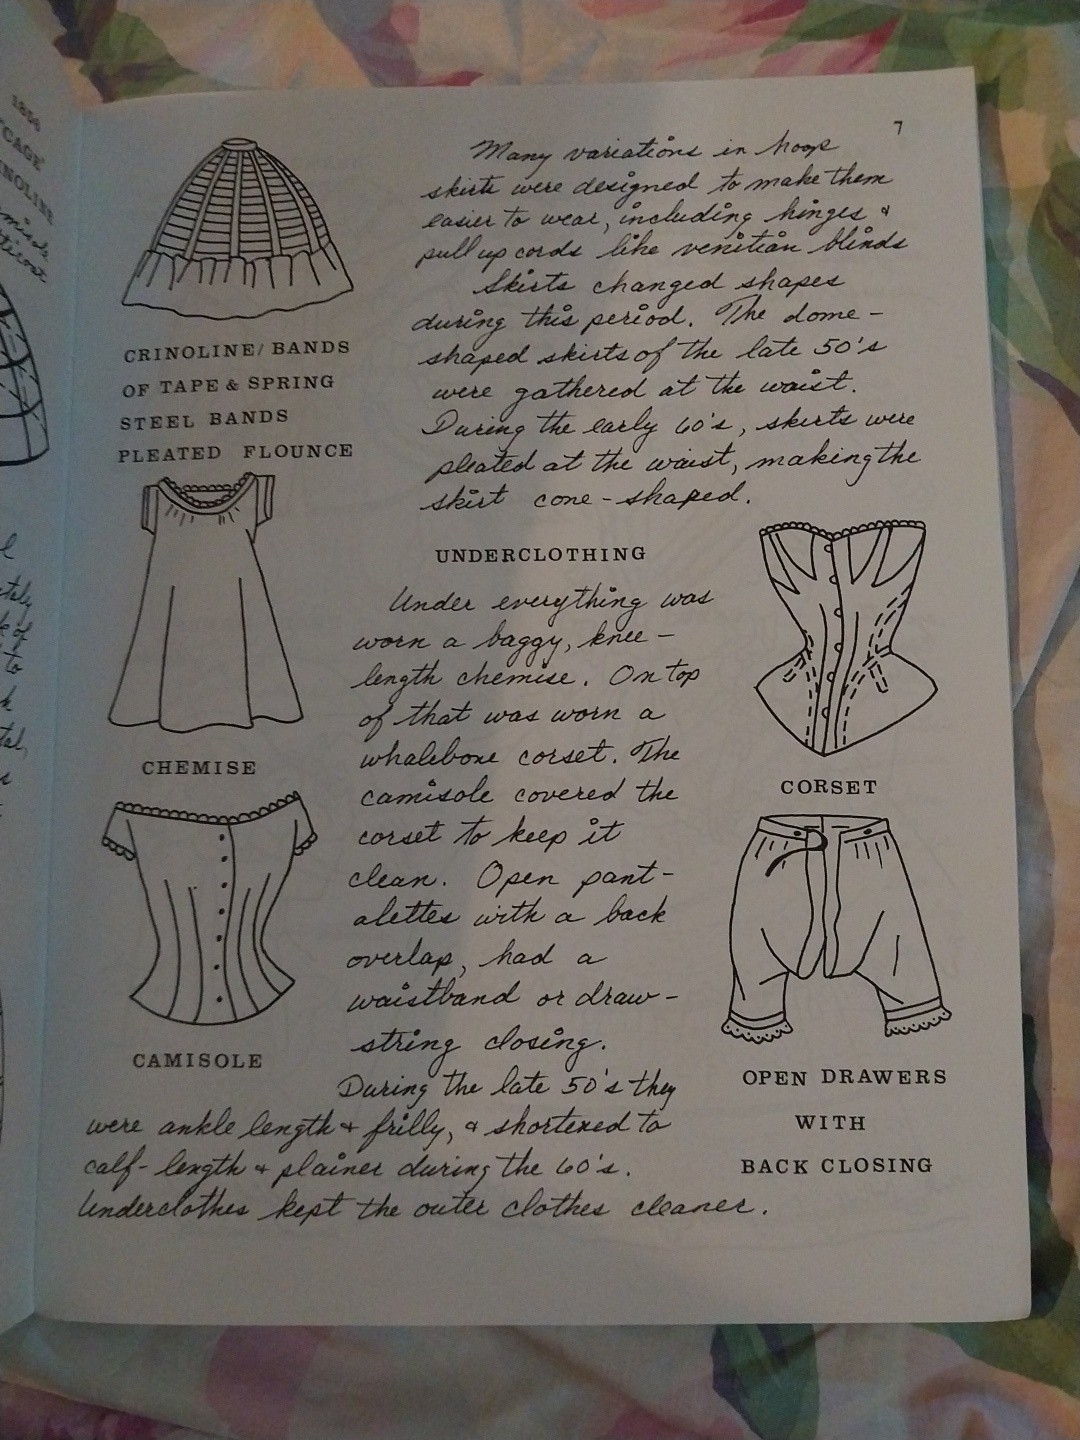 1856
"CAGE"
7
Many variations in hoop
skirts were designed to make them
easier to wear, including hinges &
pull up cords like venitian blinds
Skirts changed shapes
during this period. The dome-
shaped skirts of the late 50's
were gathered at the waist.
During the early 60's, skirts were
pleated at the waist, making the
skirt cone-shaped.
CRINOLINE/BANDS
OF TAPE & SPRING
STEEL BANDS
PLEATED FLOUNCE
UNDERCLOTHING
Under everything was
worn a baggy, knee-
length chemise. On top
of that was worn a
whalebone corset. The
camisole covered the
corset to keep it
clean. Open pant-
alettes with a back
overlap, had a
waistband or draw-
string closing.
During the late 50's they
were ankle length & frilly, & shortened to
calf-length & plainer during the 60's.
Underclothes kept the outer clothes cleaner.
CHEMISE
CAMISOLE
CORSET
OPEN DRAWERS
WITH
BACK CLOSING